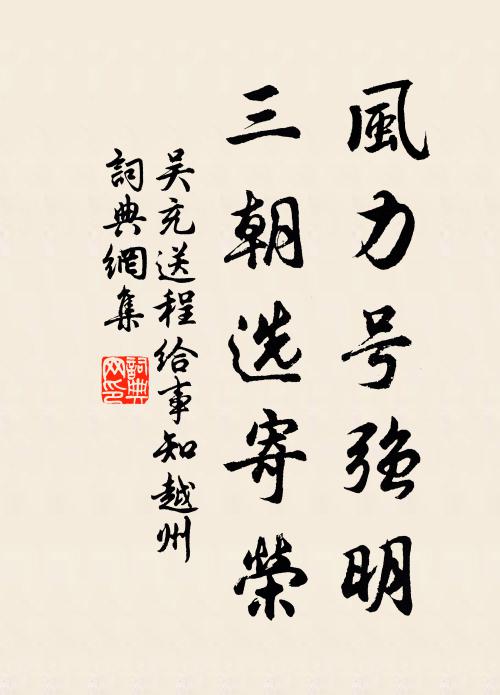 風力号強明
三朝选寄榮
吴充送程给事知越州
詞典網集
詞典
网印